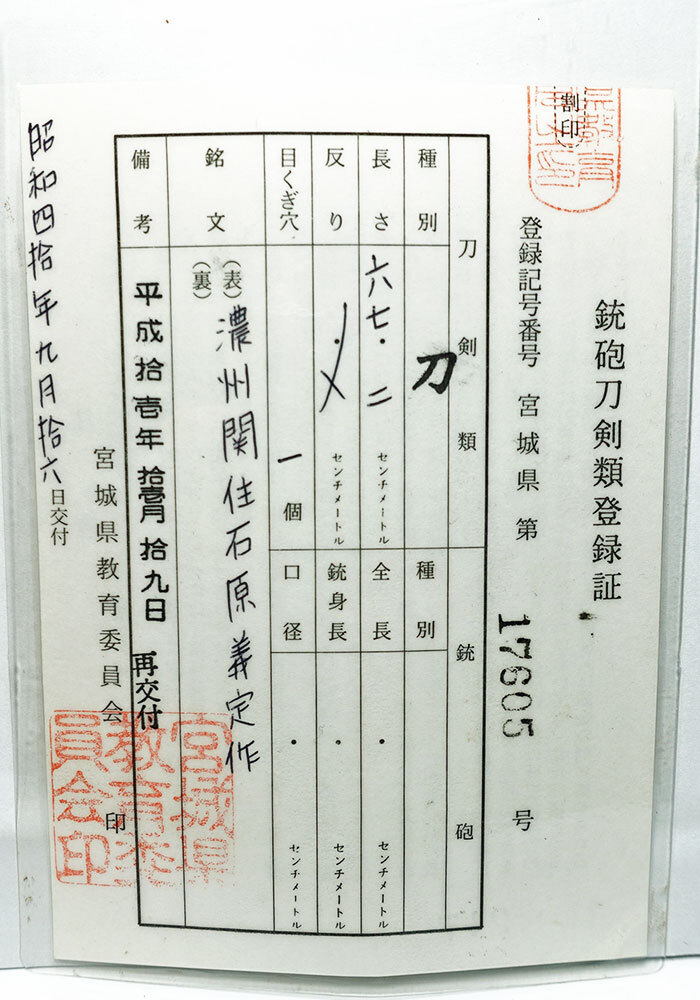 割印
銃砲刀剣類登録証
登録記号番号 宮城県 第 17605 号
刀剣類 銃砲
種別 刀 種別
長さ 六七・二 センチメートル 全長 ・ センチメートル
反り ・ センチメートル 銃身長 ・ センチメートル
目くぎ穴 一個 口径 ・ センチメートル
銘文 (表) 濃州関住石原義定作
(裏)
備考 平成拾壱年拾壱月拾九日 再交付
宮城県教育委員会 印
宮城県教育委員会印
昭和四拾年九月拾六日交付